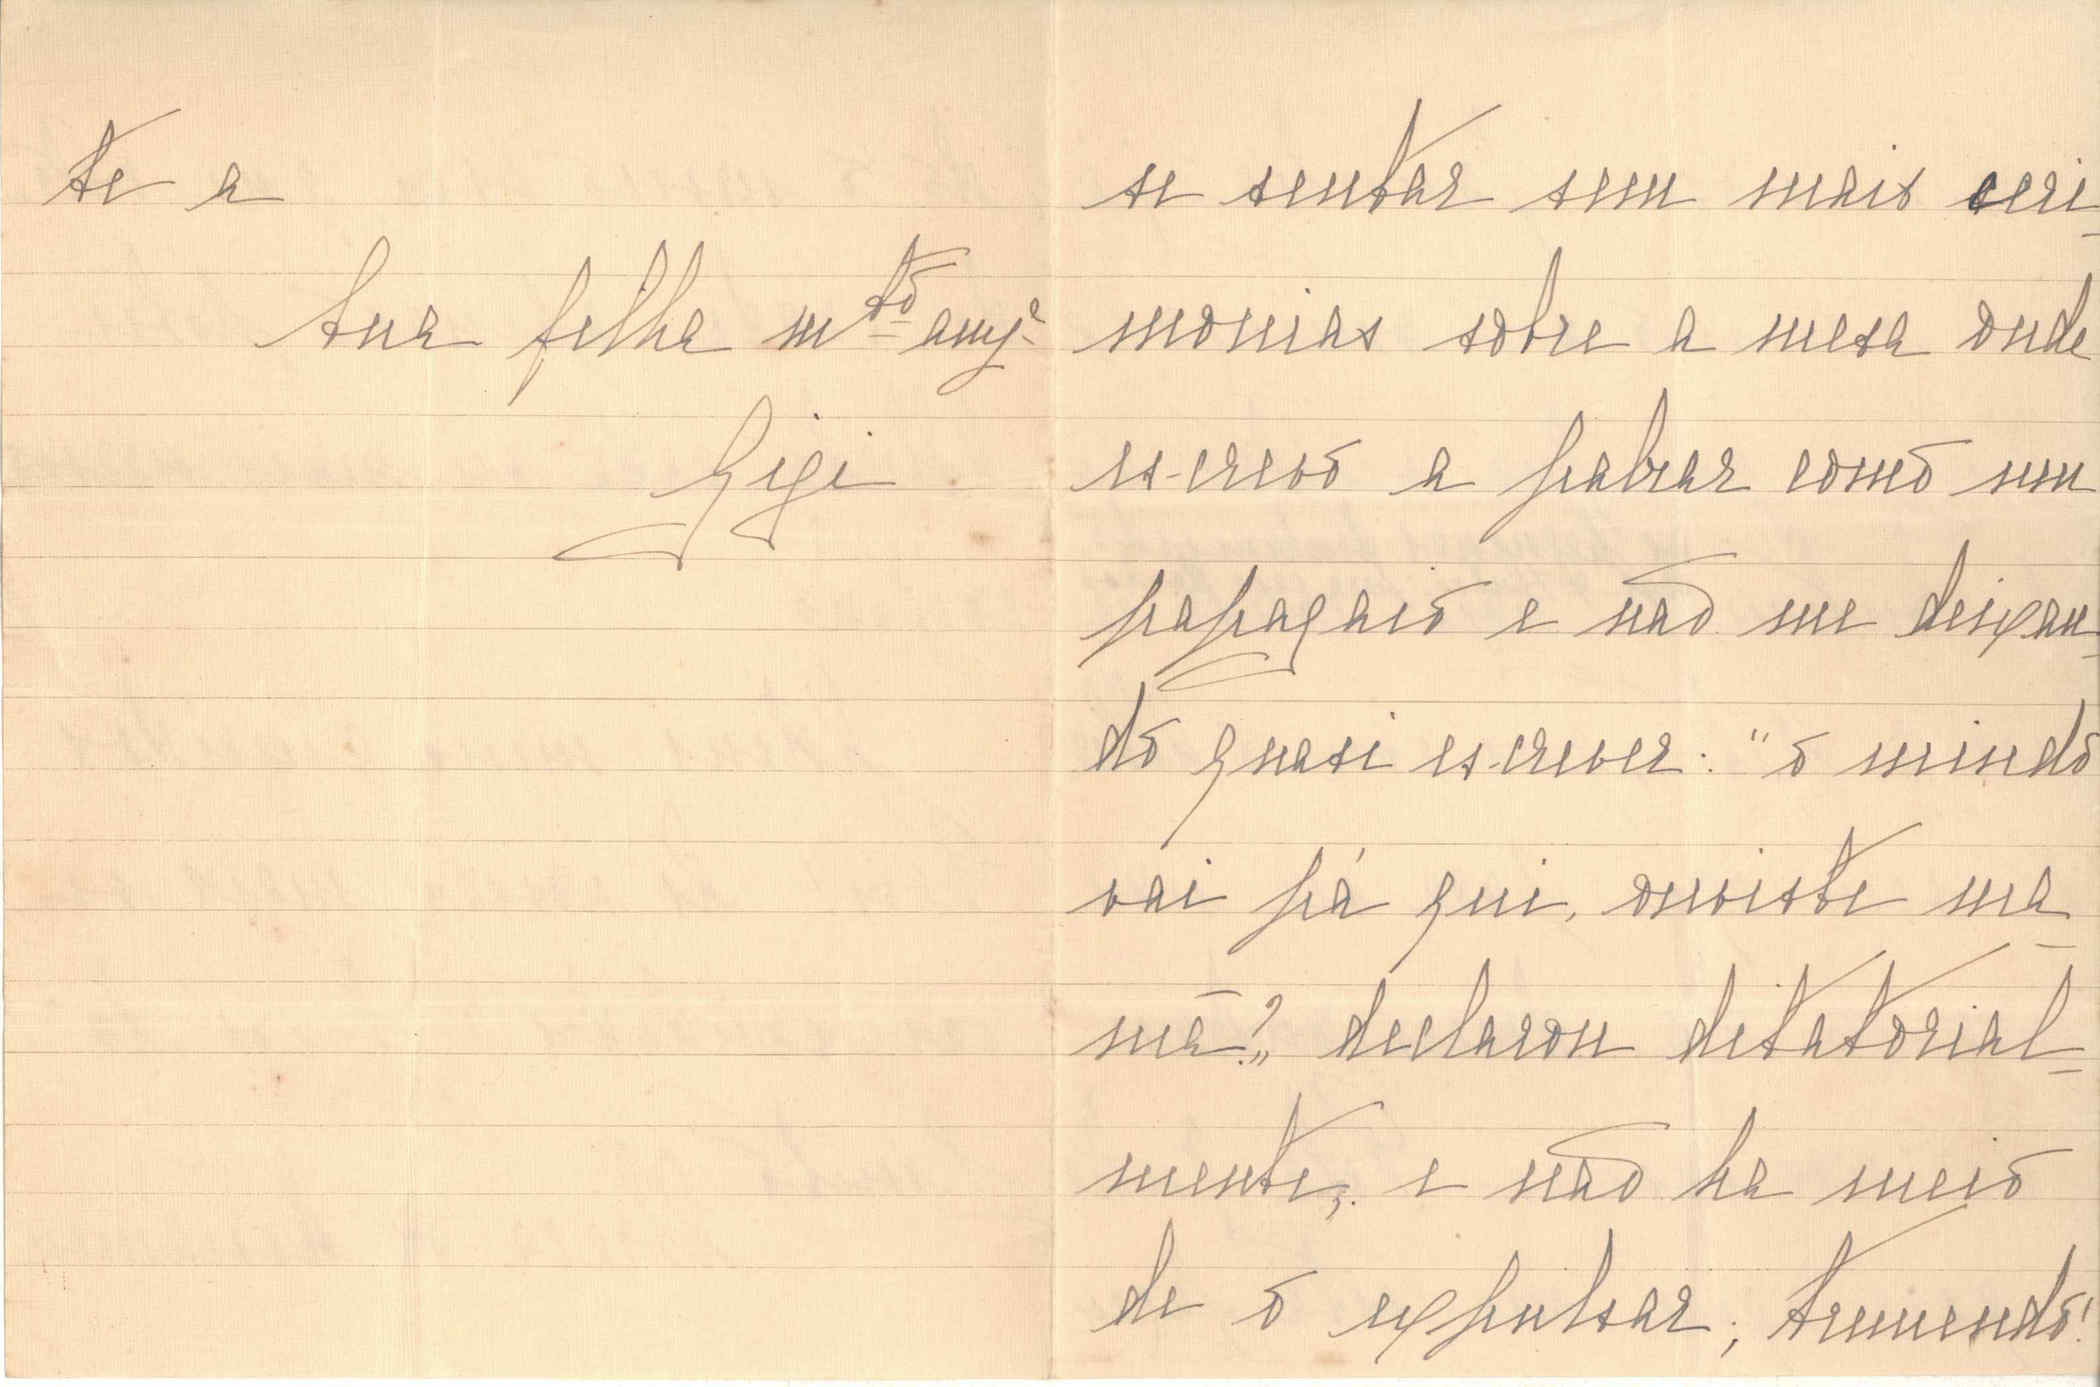 te a
tua filha mto amga
Gigi
se sentar sem mais ceri-
monias sobre a mesa onde
escrevo a palrar como um
papagaio e não me deixan-
do quasi escrever: "o mindo
vai pá qui, ouviste ma-
mã?" declarou ditatorial-
mente, e não ha meio
de o expulsar; tremendo!